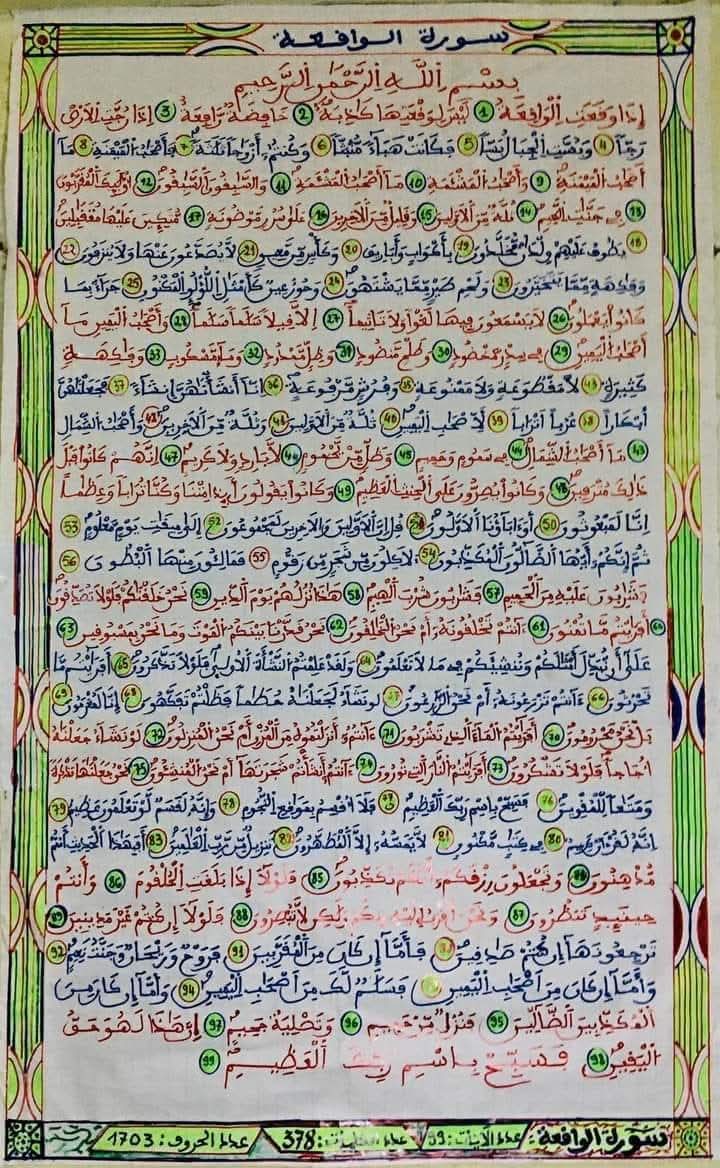 سورة الواقعة
بسم الله الرحمن الرحيم
إذا وقعت الواقعة 1 ليس لوقعتها كاذبة 2 خافضة رافعة 3 إذا رجت الارض
رجا 4 وبست الجبال بسا 5 فكانت هباء منبثا 6 وكنتم أزواجا ثلثة 7 فأصحب الميمنة 8 ما
أصحب الميمنة 9 وأصحب المشئمة 10 ما أصحب المشئمة 11 والسبقون السبقون 12 أولئك المقربون
13 في جنت النعيم 14 ثلة من الاولين 15 وقليل من الاخرين 16 على سرر موضونة 17 متكئين عليها متقبلين
18 يطوف عليهم ولدن مخلدون 19 بأكواب وأباريق 20 وكأس من معين 21 لا يصدعون عنها ولا ينزفون 22
وفكهة مما يتخيرون 23 ولحم طير مما يشتهون 24 وحور عين كأمثل اللؤلؤ المكنون 25 جزاء بما
كانوا يعملون 26 لا يسمعون فيها لغوا ولا تاثيما 27 إلا قيلا سلما سلما 28 وأصحب اليمين ما
أصحب اليمين 29 في سدر مخضود 30 وطلح منضود 31 وظل ممدود 32 وماء مسكوب 33 وفكهة
كثيرة لا مقطوعة ولا ممنوعة 35 وفرش مرفوعة 36 إنا أنشأنهن إنشاء 37 فجعلنهن
أبكارا 38 عربا أترابا 39 لأصحب اليمين 40 ثلة من الاولين 41 وثلة من الاخرين 42 وأصحب الشمال
43 ما أصحب الشمال 44 في سموم وحميم 45 وظل من يحموم 46 لا بارد ولا كريم 47 إنهم كانوا قبل
ذلك مترفين 48 وكانوا يصرون على الحنث العظيم 49 وكانوا يقولون أيذا متنا وكنا ترابا وعظما
إنا لمبعوثون 50 أوءاباؤنا الاولون قل إن الاولين والاخرين لمجموعون 52 إلى ميقت يوم معلوم 53
ثم إنكم أيها الضالون المكذبون 54 لأكلون من شجر من زقوم 55 فمالئون منها البطون 56
فشربون عليه من الحميم 57 فشربون شرب الهيم 58 هذا نزلهم يوم الدين 59 نحن خلقنكم فلولا تصدقون
60 أفرايتم ما تمنون 61 ءانتم تخلقونه أم نحن الخلقون 62 نحن قدرنا بينكم الموت وما نحن بمسبوقين 63
على أن نبدل أمثلكم وننشئكم في ما لا تعلمون 64 ولقد علمتم النشأة الاولى فلولا تذكرون 65 أفرايتم ما
تحرثون 66 ءانتم تزرعونه أم نحن الزرعون 67 لو نشاء لجعلنه حطما فظلتم تفكهون 68 إنا لمغرمون 69
بل نحن محرومون 70 أفرايتم الماء الذي تشربون 71 ءانتم أنزلتموه من المزن أم نحن المنزلون 72 لو نشاء جعلنه
أجاجا فلولا تشكرون 73 أفرايتم النار التي تورون 74 ءانتم أنشأتم شجرتها أم نحن المنشئون 75 نحن جعلنها تذكرة
ومتعا للمقوين 76 فسبح باسم ربك العظيم فلا أقسم بموقع النجوم 78 وإنه لقسم لو تعلمون عظيم 79
إنه لقرءان كريم 80 في كتب مكنون 81 لا يمسه إلا المطهرون 82 تنزيل من رب العلمين 83 أفبهذا الحديث أنتم
مدهنون وتجعلون رزقكم أنكم تكذبون 85 فلولا إذا بلغت الحلقوم 86 وأنتم
حينئيذ تنظرون 87 ونحن أقرب إليه منكم ولكن لا تبصرون 88 فلولا إن كنتم غير مدينين 89
ترجعونها إن كنتم صدقين فأما إن كان من المقربين 91 فروح وريحان وجنت نعيم 92
وأما إن كان من أصحب اليمين فسلم لك من أصحب اليمين 94 وأما إن كان من
المكذبين الضالين 95 فنزل من حميم 96 وتصلية جحيم 97 إن هذا لهو حق
اليقين 98 فسبح باسم ربك العظيم 99
سورة الواقعة عدد الآيات: 99 عدد الكلمات: 378 عدد الحروف: 1703